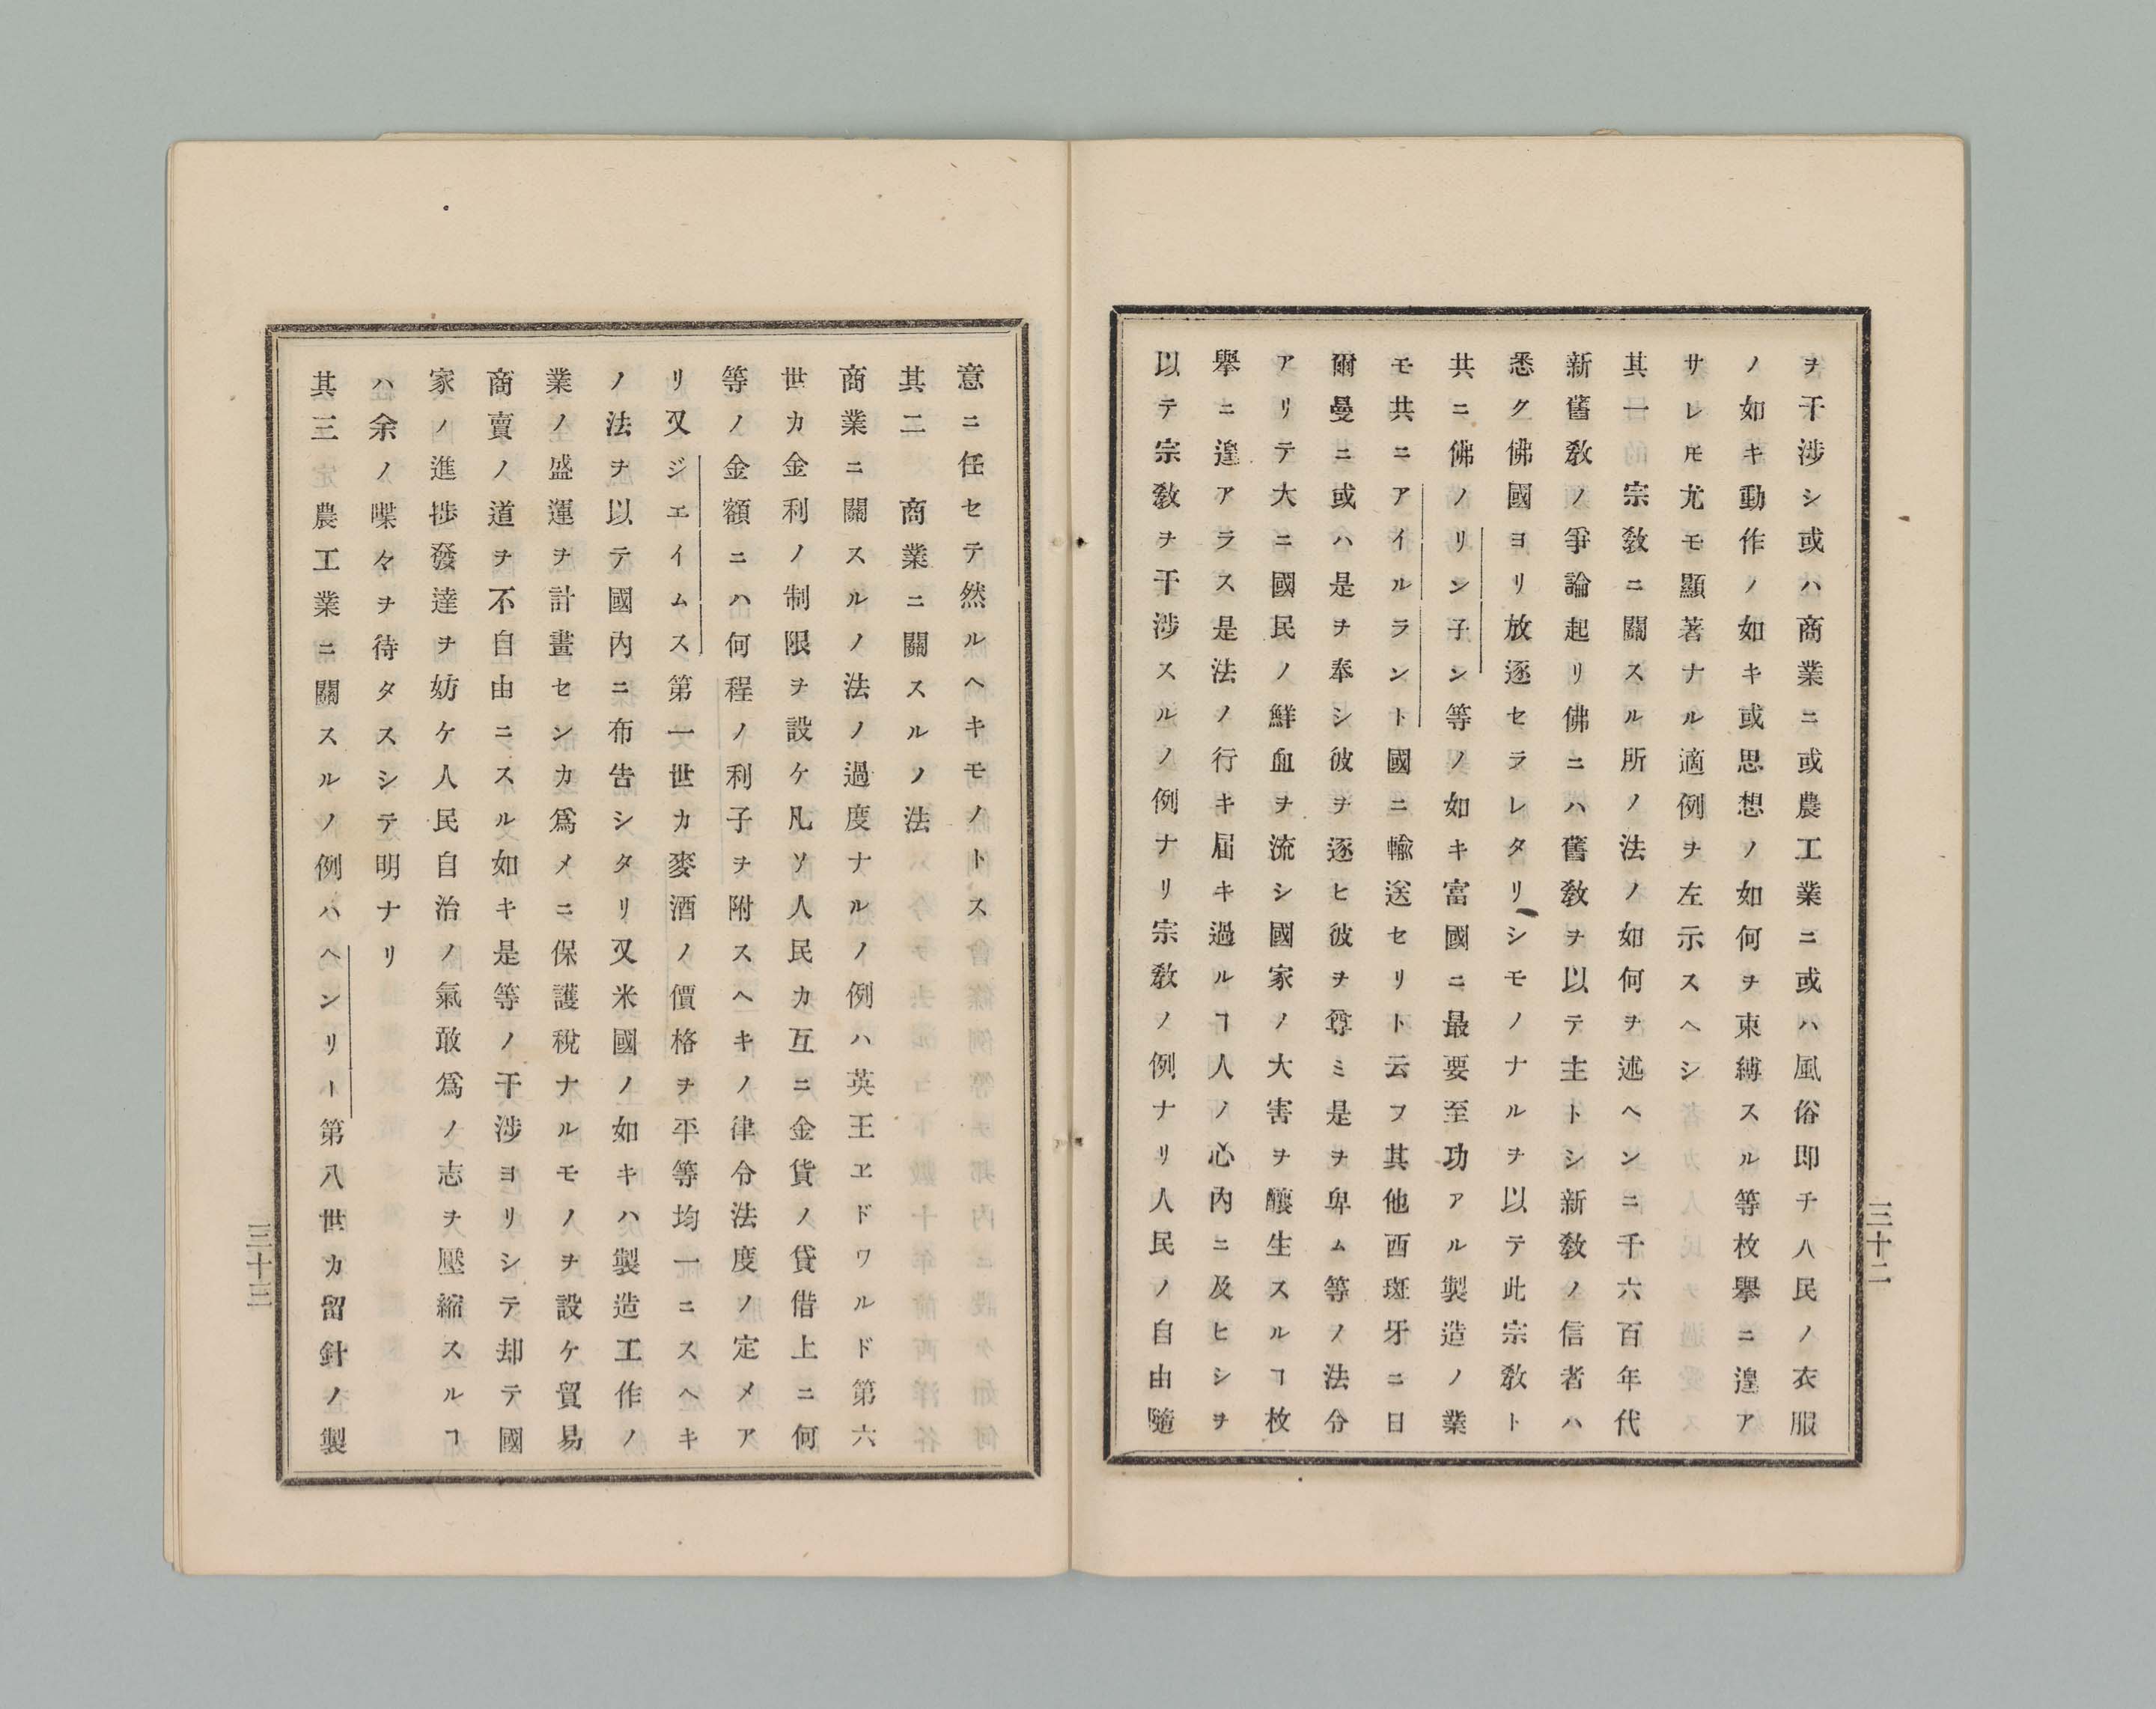 ヲ干渉シ或ハ商業ニ或農工業ニ或ハ風俗即チ人民ノ衣服
ノ如キ動作ノ如キ或思想ノ如何ヲ束縛スル等枚擧ニ遑ア
サレㇳモ尤モ顯著ナル適例ヲ左示スヘシ
其一宗敎ニ關スル所ノ法ノ如何ヲ述ヘンニ千六百年代
新舊敎ノ爭論起リ佛ニハ舊敎ヲ以テ主トシ新敎ノ信者ハ
悉ク佛國ヨリ放逐セラレタリシモノナルヲ以テ此宗敎ト
共ニ佛ノリン子ン等ノ如キ富國ニ最要至功アル製造ノ業
モ共ニアイルラント國ニ輸送セリト云フ其他西班牙ニ日
爾曼ニ或ハ是ヲ奉シ彼ヲ逐ヒ彼ヲ尊ミ是ヲ卑ム等ノ法分
アリテ大ニ國民ノ鮮血ヲ流シ國家ノ大害ヲ釀生スルヿ枚
擧ニ遑アラス是法ノ行キ届キ過ルヿ人ノ心内ニ及ヒシヲ
以テ宗敎ヲ干渉スルノ例ナリ宗敎ノ例ナリ人民ノ自由隨
三十二
意ニ任セテ然ルヘキモノトス
其二 商業ニ關スルノ法
商業ニ關スルノ法ノ過度ナルノ例ハ英王ヱドワルド第六
世カ金利ノ制限ヲ設ケ凡ソ人民カ互ニ金貨ノ貸借上ニ何
等ノ金額ニハ何程ノ利子ヲ附スヘキノ律令法度ノ定メア
リ又ジエイムス第一世カ麥酒ノ價格ヲ平等均一ニスヘキ
ノ法ヲ以テ國内ニ布告シタリ又米國ノ如キハ製造工作ノ
業ノ盛運ヲ計畫センカ爲メニ保護稅ナルモノヲ設ケ貿易
商賣ノ道ヲ不自由ニスル如キ是等ノ干渉ヨリシテ却テ國
家ノ進捗發達ヲ妨ケ人民自治ノ氣敢爲ノ志ヲ壓縮スルヿ
ハ余ノ喋々ヲ待タスシテ明ナリ
其三 農工業ニ關スルノ例ハヘンリー第八世カ留針ノ製
三十三